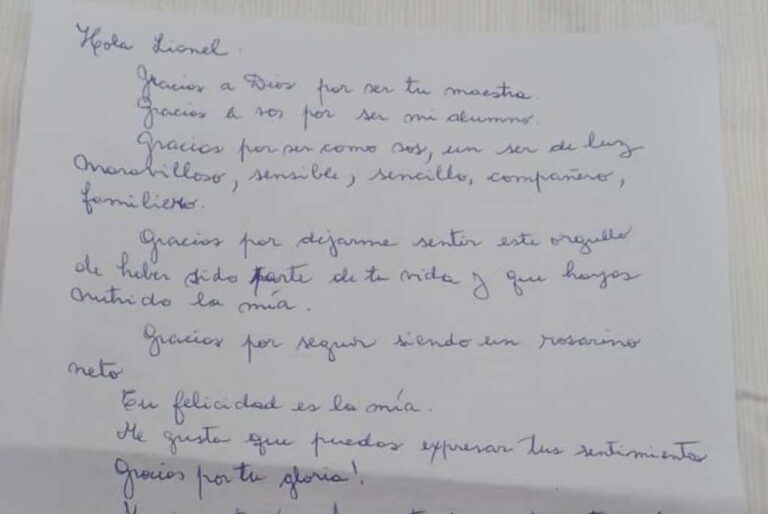 Hola Lionel.
Gracias a Dios por ser tu maestra.
Gracias a vos por ser mi alumno.
Gracias por ser como sos, un ser de luz
maravilloso, sensible, sencillo, compañero,
familiero.
Gracias por dejarme sentir este orgullo
de haber sido parte de tu vida y que hayas
nutrido la mía.
Gracias por seguir siendo un rosarino
neto
Tu felicidad es la mía.
Me gusta que puedas expresar tus sentimientos
Gracias por tu gloria!